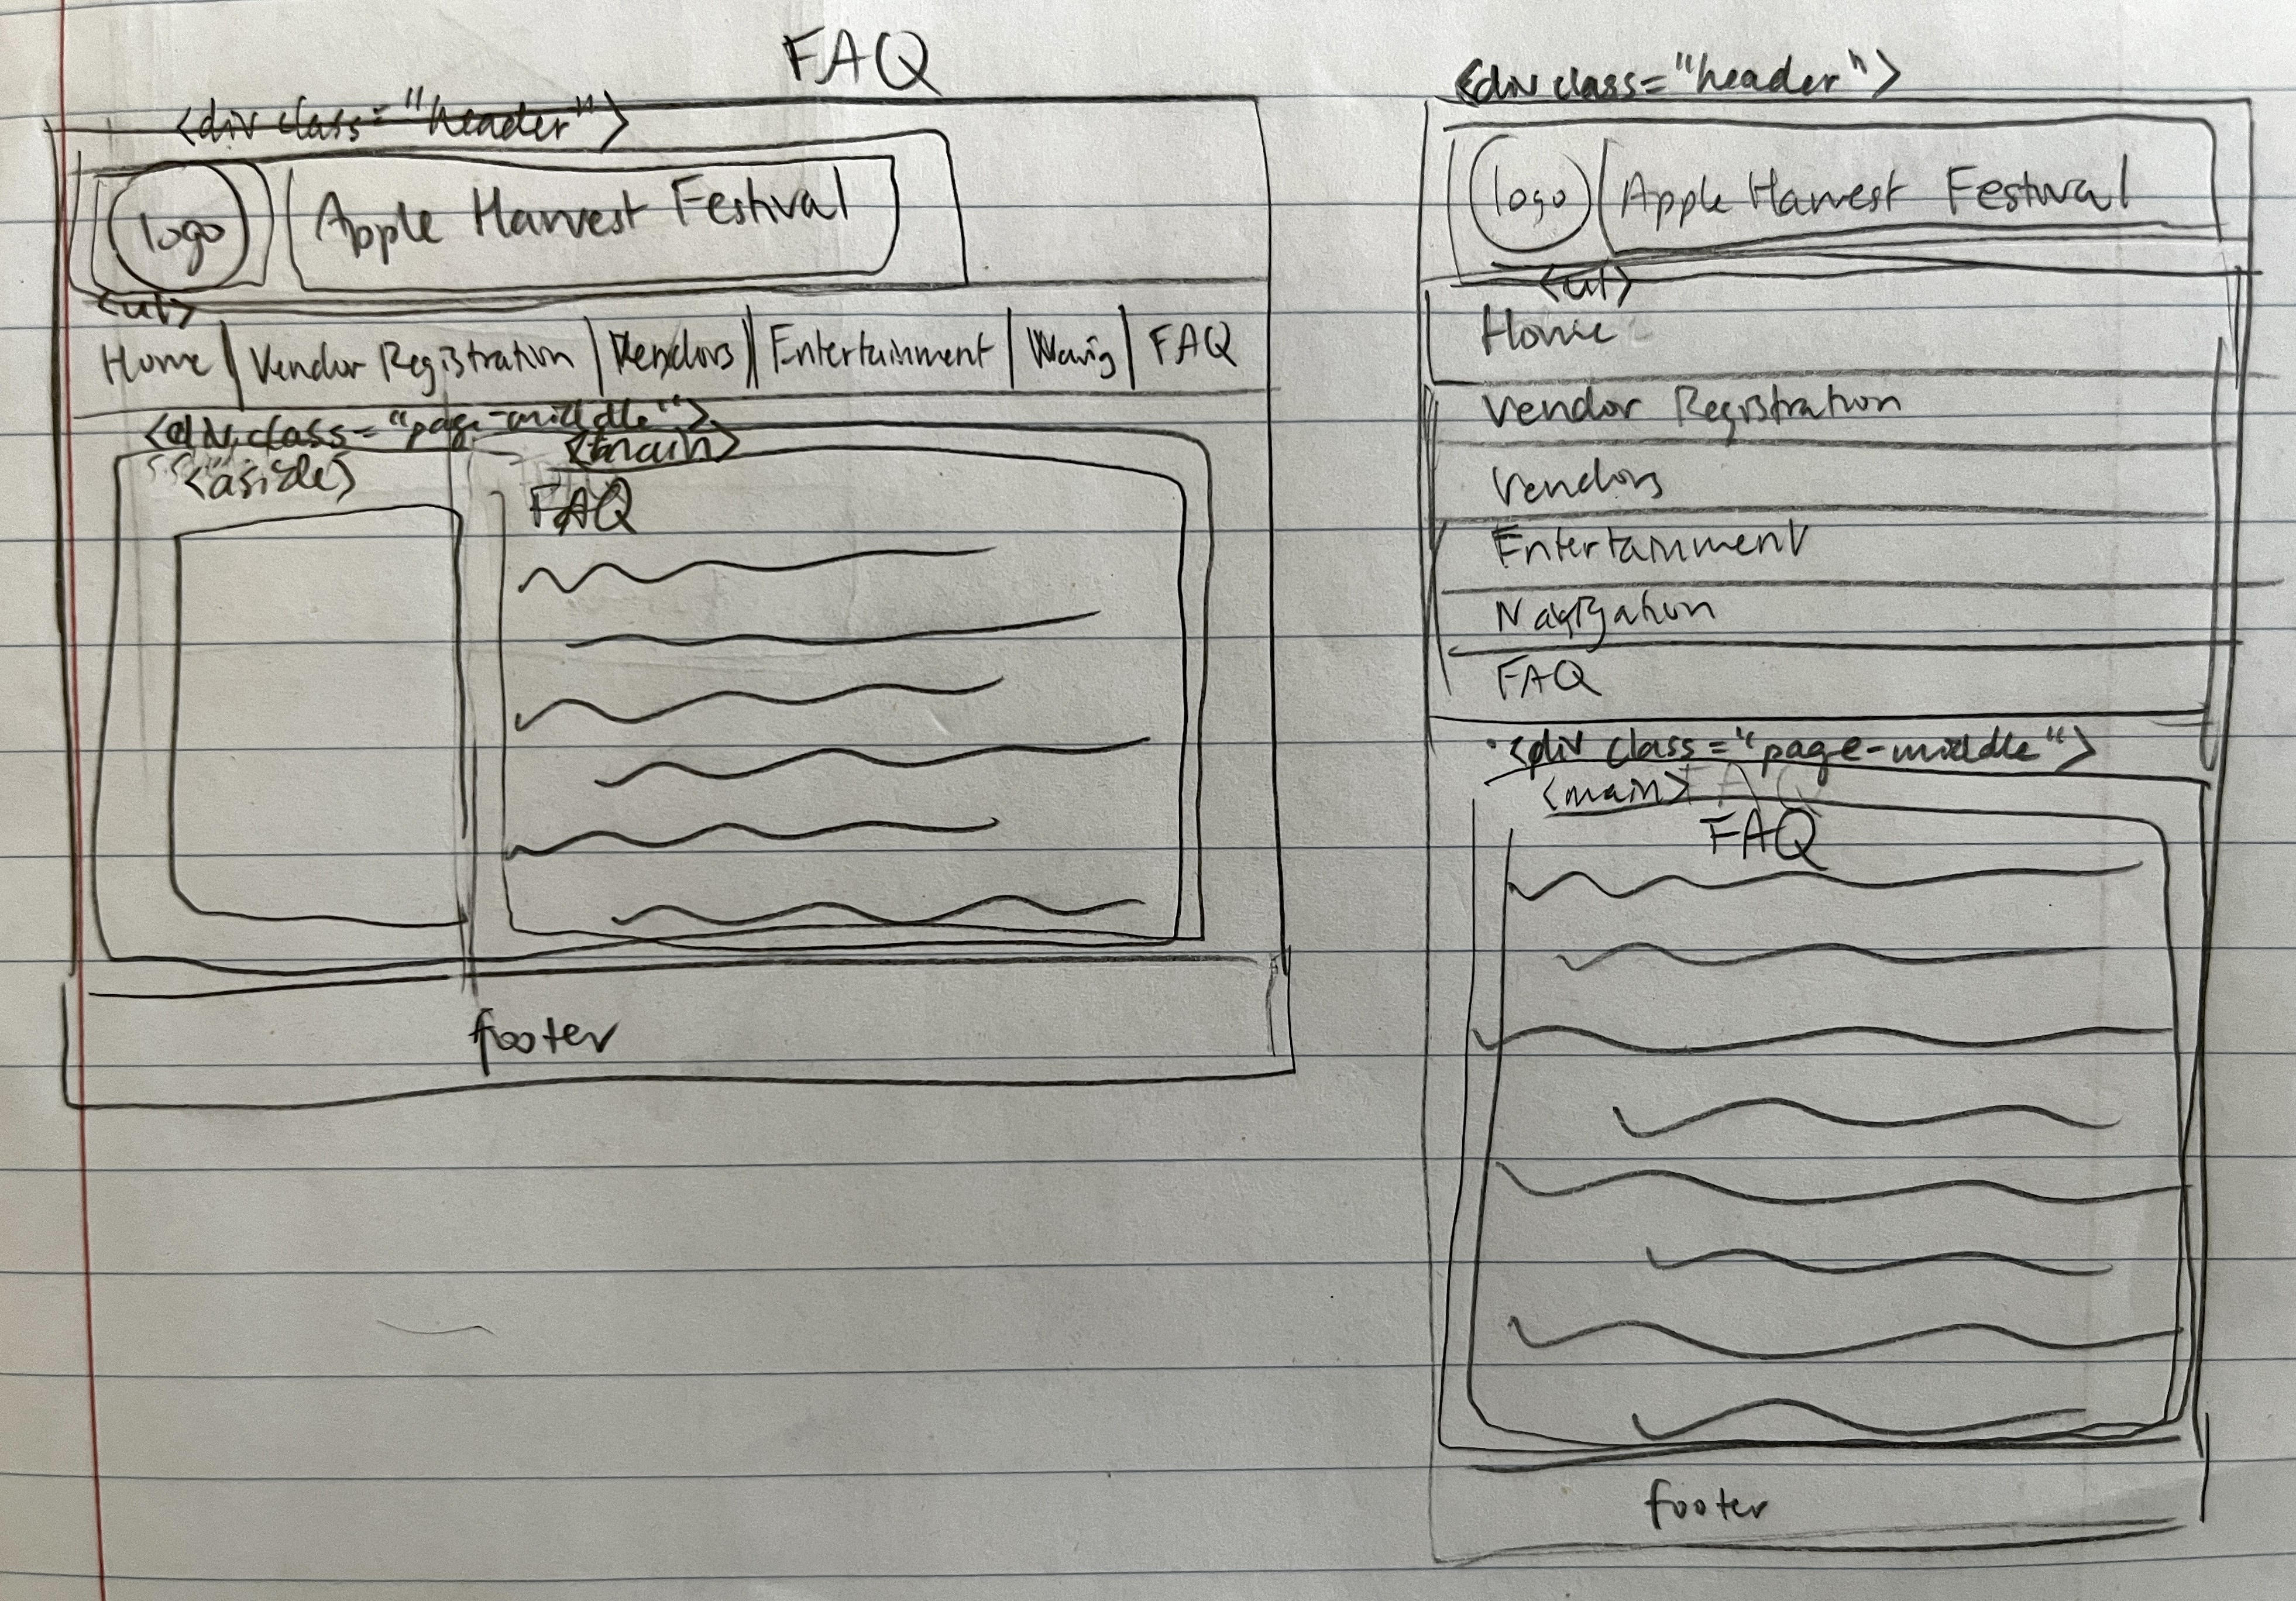 FAQ
<div class="header">
logo
Apple Harvest Festival
<ul>
Home
Vendor Registration
Vendors
Entertainment
FAQ
<div class="page-middle">
<aside>
<main>
FAQ
footer
<div class="header">
logo
Apple Harvest Festival
<ul>
Home
Vendor Registration
Vendors
Entertainment
Navigation
FAQ
<div class="page-middle">
<main>
FAQ
footer